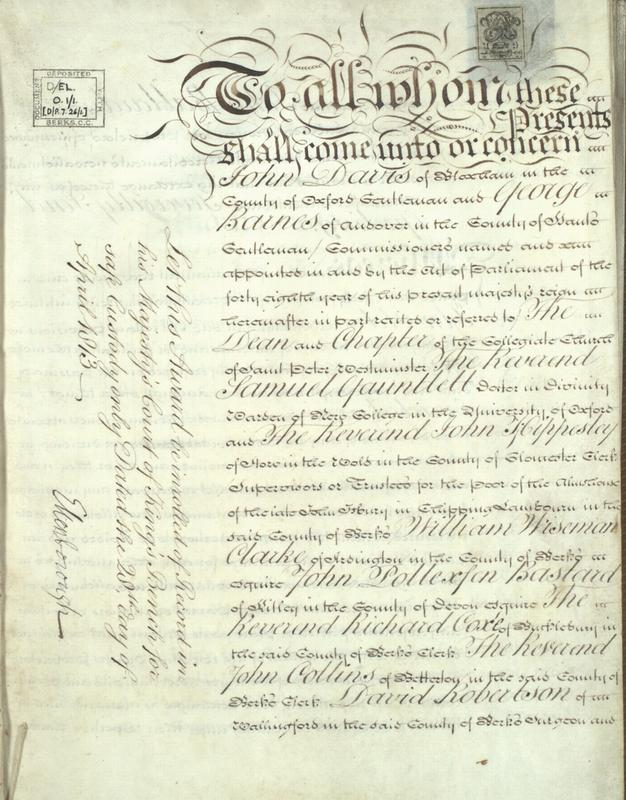 DEPOSITED
DOCUMENT
D/EL.
O.1/1.
[D/P.7.26/1]
BERKS.C.C.
To all whom these
Presents
shall come unto or concern
John Davis of Bloxham in the
County of Oxford Gentleman and George
Barnes of Andover in the County of Hants
Gentleman Commissioners named and
appointed in and by the Act of Parliament of the
forty eighth year of his present majesty's reign
hereinafter in part recited or referred to The
Dean and Chapter of the Collegiate Church
of Saint Peter Westminster The Reverend
Samuel Gauntlett Doctor in Divinity
Warden of New College in the University of Oxford
and The Reverend John Hippesley
of Stow in the Wold in the County of Gloucester Clerk
Supervisors or Trustees for the Poor of the Almshouse
of the late John Isbury in Chipping Lambourn in the
said County of Berks William Wiseman
Clarke of Ardington in the County of Berks
Esquire John Pollexfen Bastard
of Kitley in the County of Devon Esquire The
Reverend Richard Coxe of Bucklebury in
the said County of Berks Clerk The Reverend
John Collins of Betterton in the said County of
Berks Clerk David Robertson of
Wallingford in the said County of Berks Surgeon and
Let this Award be inrolled of Record in
his Majesty's Court of King's Bench for
safe Custody only Dated the 28th day of
April 1813
Ellenborough